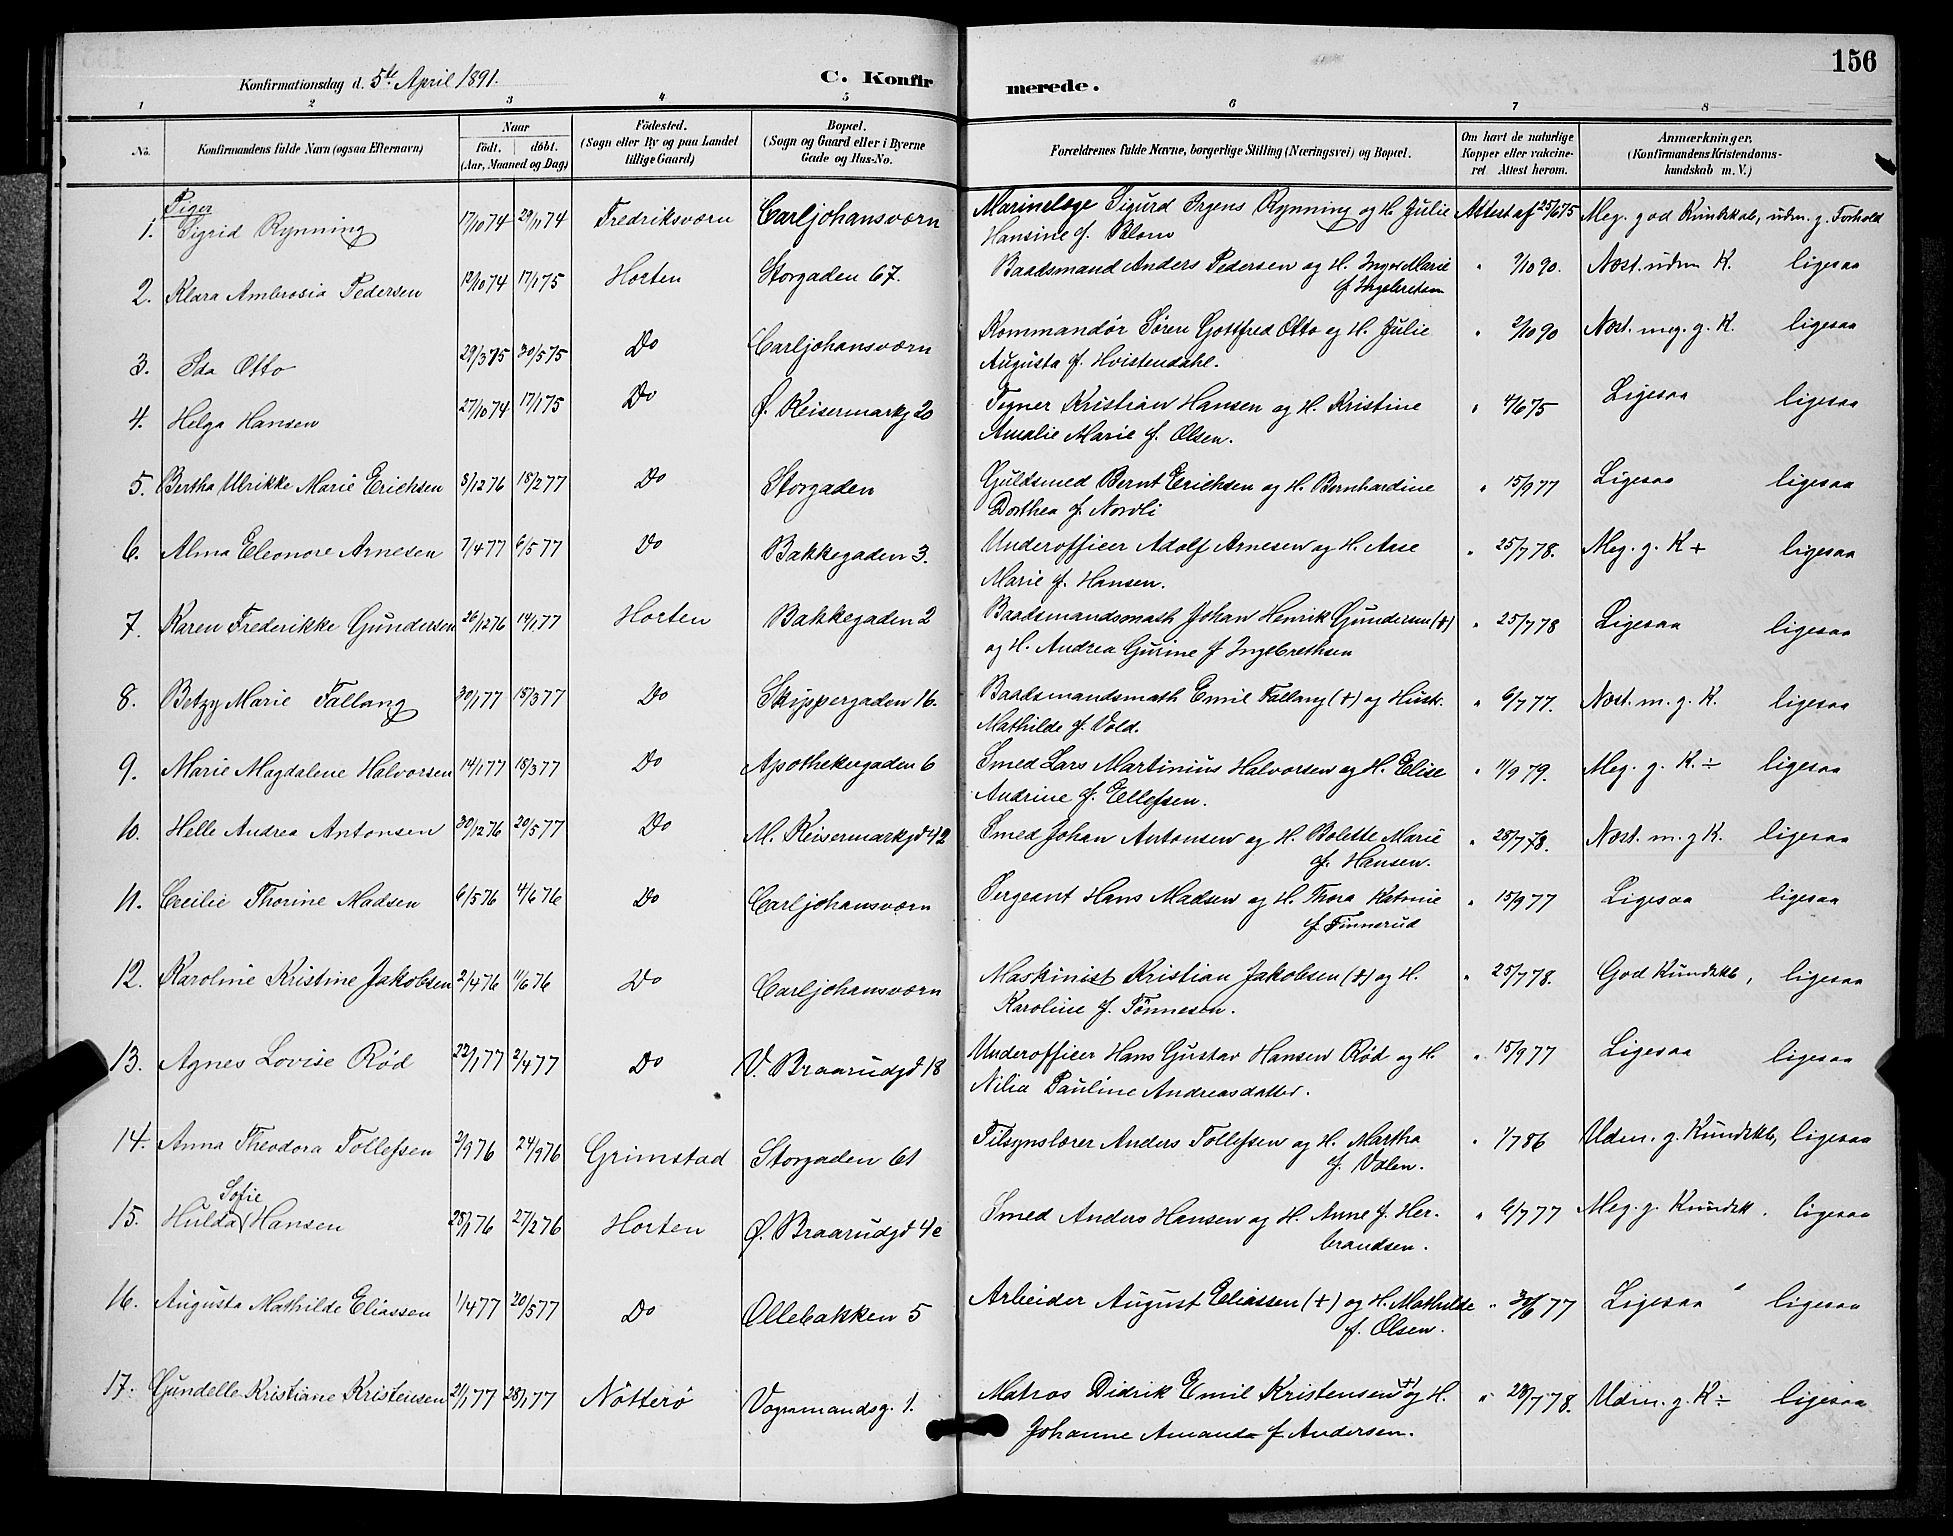 156
Konfirmationsdag d. 5te April 1891. C. Konfirmerede.
1 2 3 4 5 6 7 8
No. Konfirmandens fulde Navn (ogsaa Efternavn) Naar født. døbt. (Aar, Maaned og Dag) Födested. (Sogn eller By og paa Landet tillige Gaard) Bopæl. (Sogn og Gaard eller i Byerne Gade og Hus-No. Forældrenes fulde Navne, borgerlige Stilling (Næringsvei) og Bopæl. Om havt de naturlige Kopper eller vakcineret Attest herom. Anmærkninger, (Konfirmandens Kristendomskundskab m. V.)
Piger
1. Sigrid Rynning 17/10 74 29/11 74 Fredriksværn Carljohansværn Marinelæge Sigurd Irgens Rynning og H. Julie Attest af 25/6 75 Meg. god Kundskab, udm. g. Forhold
Hansine f. Blom
2. Klara Ambrosia Pedersen 19/10 74 17/1 75 Horten Storgaden 67. Baadsmand Anders Pedersen og H. Inger Marie " 2/10 90. Næst. udm K. ligesaa
f. Ingebretsen
3. Ida Otto 29/3 75 30/5 75 Do Carljohansværn Kommandør Søren Gottfred Otto og H. Julie " 2/10 90 Næst. meg. g. K. ligesaa
Augusta f. Hvistendahl.
4. Helga Hansen 27/10 74 17/1 75 Do Ø. Keisermarkg 20 Tegner Kristian Hansen og H. Kristine " 4/6 75 Ligesaa ligesaa
Amalie Marie f. Olsen.
5. Bertha Ulrikke Marie Erichsen 8/12 76 18/2 77 Do Storgaden Guldsmed Bernt Erichsen og H. Bernhardine " 15/9 77 Ligesaa ligesaa
Dorthea f. Nordli
6. Alma Eleonore Arnesen 7/4 77 6/5 77 Do Bakkegaden 3. Underofficer Adolf Arnesen og H. Aase " 25/7 78. Meg. g. K + ligesaa
Marie f. Hansen.
7. Karen Frederikke Gundersen 26/12 76 14/1 77 Horten Bakkegaden 2 Baadsmandsmath Johan Henrik Gundersen (+) " 25/7 78 Ligesaa ligesaa
og H. Andrea Gurine f Ingebrethsen
8. Betzy Marie Fallang 30/1 77 18/3 77 Do Skippergaden 16. Baadsmandsmath Emil Fallang (+) og Hustr. " 6/7 77. Næst. m. g. K. ligesaa
Mathilde f. Vold.
9. Marie Magdalene Halvorsen 14/1 77 18/3 77 Do Apothekergaden 6 Smed Lars Martinius Halvorsen og H. Elise " 11/9 79. Meg. g. K. ÷ ligesaa
Andrine f. Ellefsen.
10. Helle Andrea Antonsen 30/12 76 20/5 77 Do M. Keisermarkgd 42 Smed Johan Antonsen og H. Bolette Marie " 28/7 78. Næst. m. g K. ligesaa
f. Hansen.
11. Cecilie Thorine Madsen 6/5 76 4/6 76 Do Carljohansværn Sergeant Hans Madsen og H. Thora Katrine " 15/9 77 Ligesaa ligesaa
f. Finnerud
12. Karoline Kristine Jakobsen 2/4 76 11/6 76 Do Carljohansværn Maskinist Kristian Jakobsen (+) og H. " 25/7 78. God Kundskb, ligesaa
Karoline f. Tönnesen.
13. Agnes Lovise Rød 22/1 77 2/4 77 Do V. Braarudgd 18 Underofficer Hans Gustav Hansen Rød og H. " 15/9 77 Ligesaa ligesaa
Nilia Pauline Andreasdatter.
14. Anna Theodora Tollefsen 2/9 76 24/9 76 Grimstad Storgaden 61 Tilsynslærer Anders Tollefsen og H. Martha " 1/7 86 Udm. g. Kundskb, ligesaa
f. Valen.
Sofie
15. Hulda Hansen 28/1 76 27/2 76 Horten Ø. Braarudgd 4c Smed Anders Hansen og H. Anne f. Her- " 6/7 77 Meg. g. Kundsk. ligesaa
brandsen.
16. Augusta Mathilde Eliassen 1/4 77 20/5 77 Do Ollebakken 5 Arbeider August Eliassen (+) og H. Mathilde " 77 Ligesaa ligesaa
f. Olsen.
17. Gundelle Kristiane Kristensen 21/1 77 28/1 77 Nötterö Vognmandsg. 1. Matros Didrik Emil Kristensen + og H. " 28/7 78. Udm. g. K ÷ ligesaa
Johanne Amanda f Andersen.